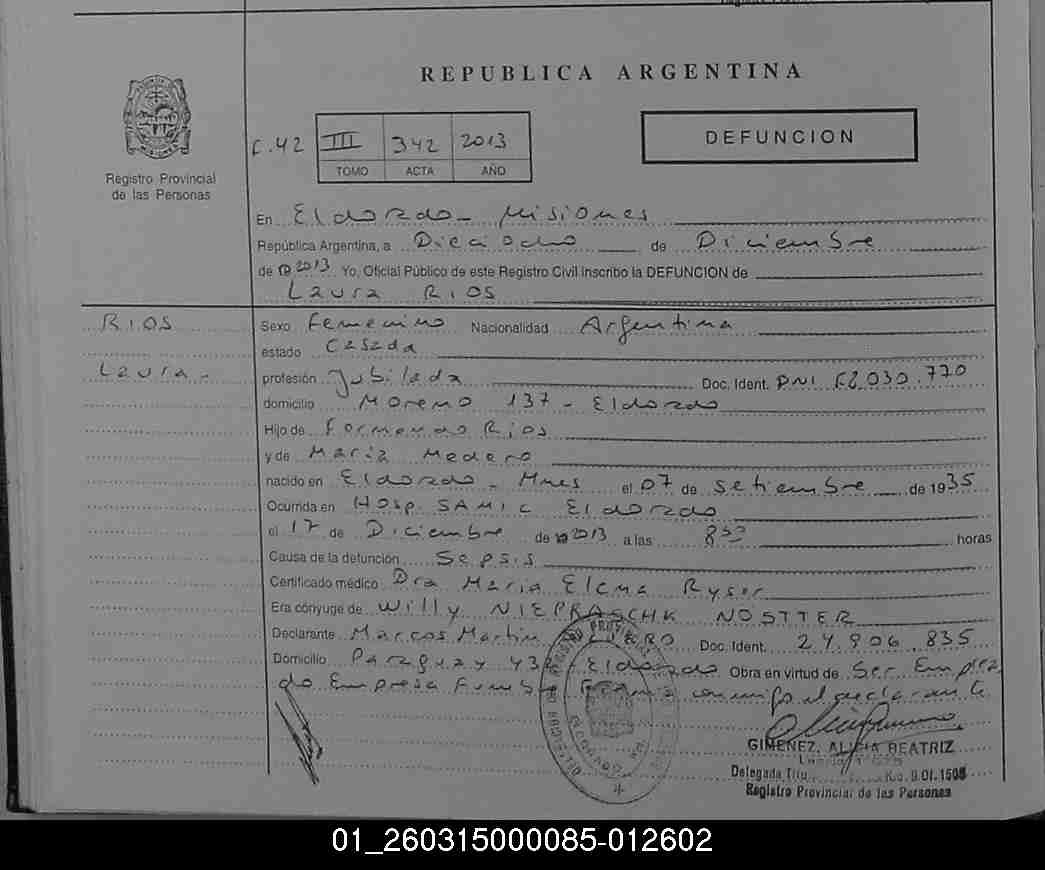 REPUBLICA ARGENTINA
Registro Provincial
de las Personas
C.42 III 342 2013
TOMO ACTA AÑO
DEFUNCION
En Eldorado - Misiones
República Argentina, a Dieciocho de Diciembre
de 2013 Yo, Oficial Público de este Registro Civil inscribo la DEFUNCION de
Laura Rios
RIOS
Laura -
Sexo Femenino Nacionalidad Argentina
estado Casada
profesión Jubilada Doc. Ident. DNI F2.030.770
domicilio Moreno 137 - Eldorado
Hijo de Fernando Rios
y de Maria Medero
nacido en Eldorado - Mnes el 07 de Setiembre de 1935
Ocurrida en Hosp. SAMIC Eldorado
el 17 de Diciembre de 2013 a las 8:30 horas
Causa de la defunción Sepsis
Certificado médico Dra Maria Elena Ryser
Era cónyuge de Willy NIEPRASCHK NOSTTER
Declarante Marcos Martin Doc. Ident. 24.906.835
Domicilio Paraguay Eldorado Obra en virtud de Ser Emplea
do Empresa Funebre conmigo el declarante
GIMENEZ, ALICIA BEATRIZ
Delegada Titu. R.O. 9.Of. 1508
Registro Provincial de las Personas
01_260315000085-012602